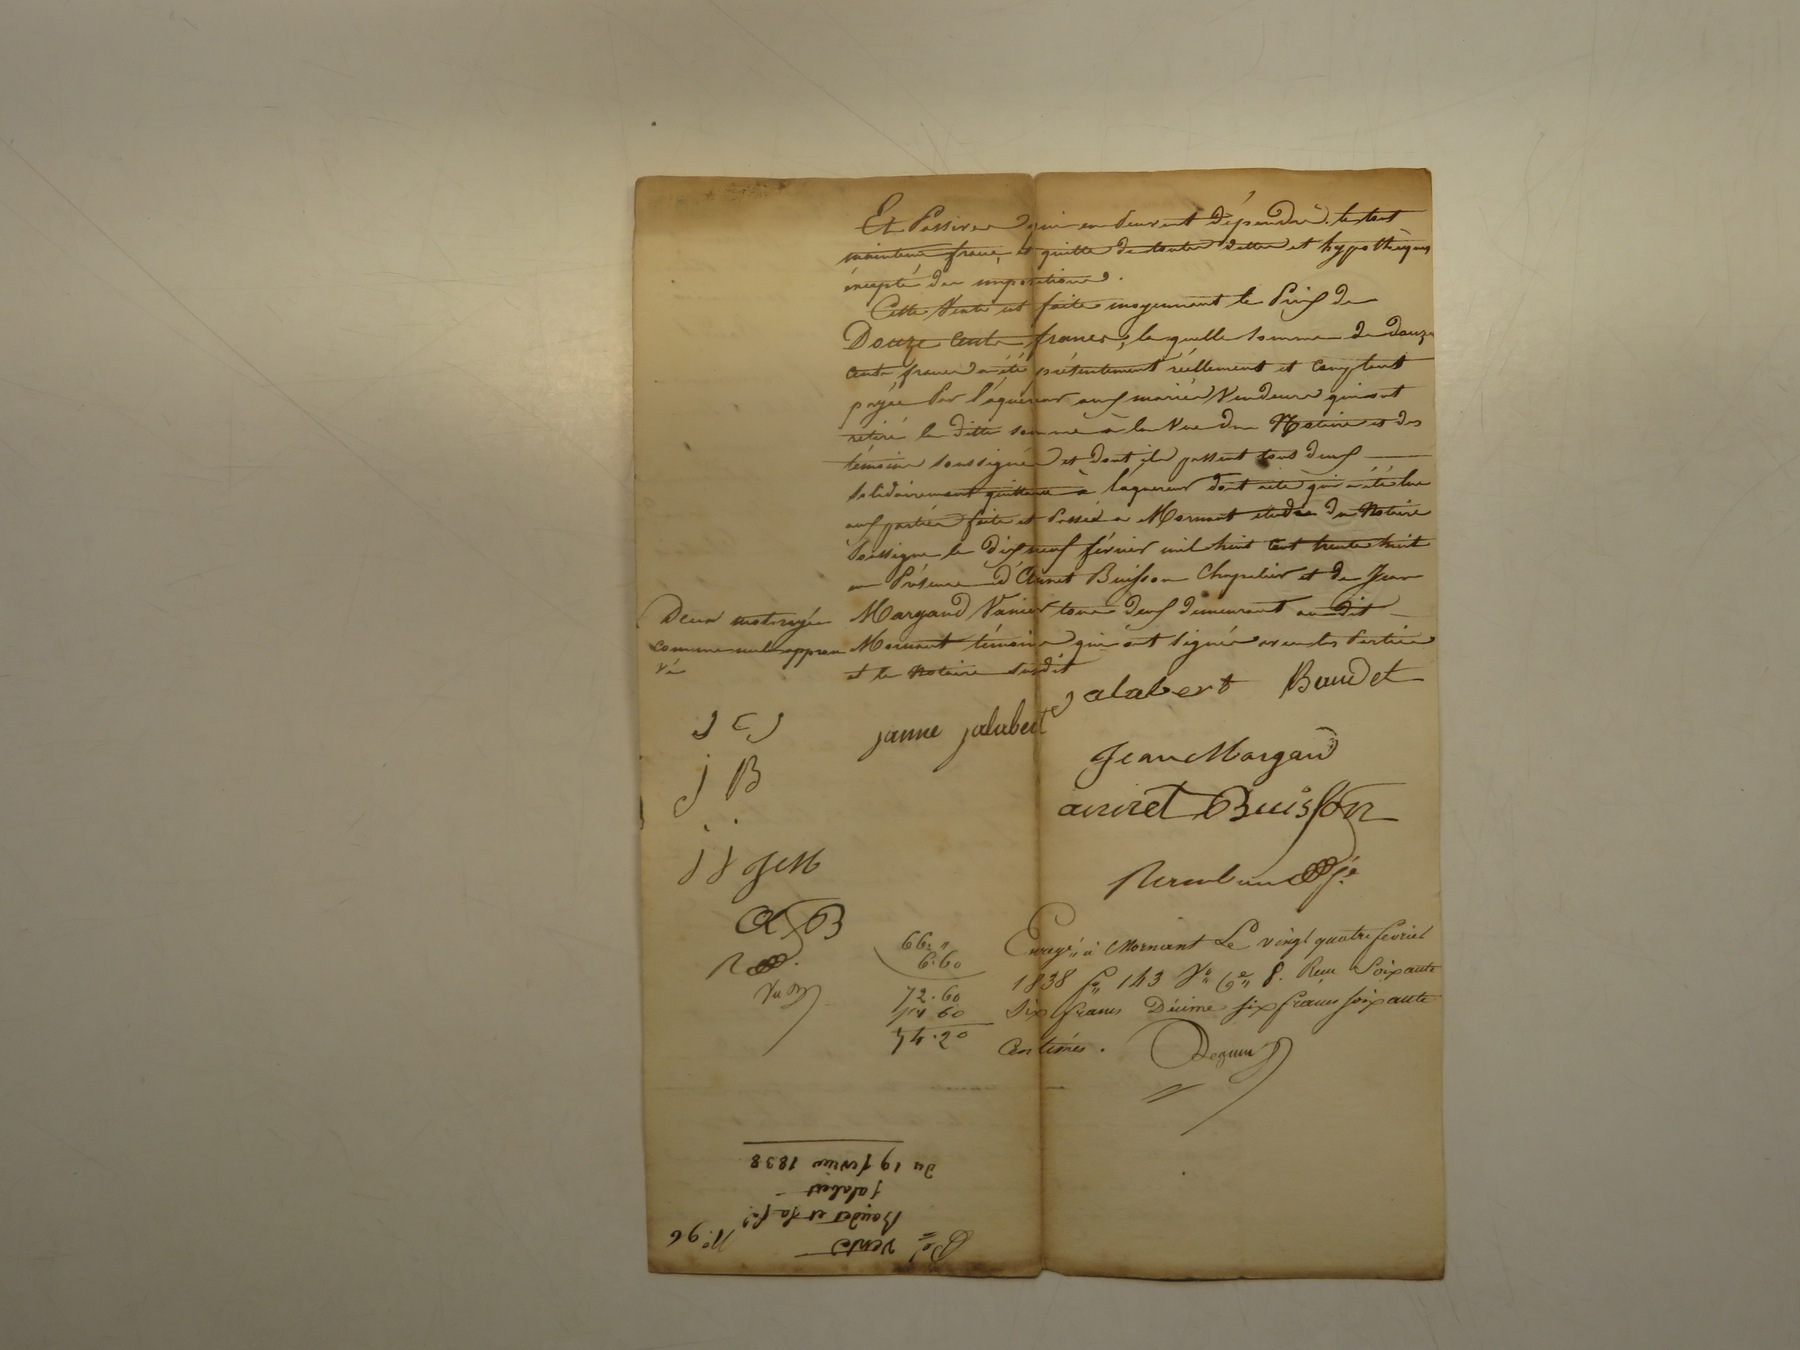 Et Passives qui en peuvent dépendre. le tout
maintenu franc, et quitte de toutes dettes et hypothèques
éxcepté des impositions.
Cette Vente est faite moyennant le Prix de
Douze Cents francs, la quelle somme de douze
Cents francs a été présentement réellement et comptant
payée Par l'aquéreur aux mariés Vendeurs qui ont
retiré la ditte somme à la Vue du Notaire et des
témoins soussignés et dont ils passent tous deux
Solidairement quittance à laquereur dont acte qui a été lue
aux parties fait et Passé a Mornant étude du Notaire
Soussigné le dix neuf février mil huit cent trente huit
en Présence d'Annet Buisson Chapelier et de Jean
Margand Vanier tous deux demeurant au dit
Mornant témoins qui ont signés avec les Parties
et le Notaire susdit
Deux mots rayés
comme nuls approu
vé
jalabert Baudet
janne jalabert
J C J
j B
Jean Margand
annet Buisson
j j JM
A B
66. "
6. 60
72. 60
Enregé. à Mornant Le vingt quatre fevrier
1838 fo. 143 Vo. Ce. 8. Reçu Soixante
Six francs Décime six francs soixante
Centimes.
No. 96
Vente
Baudet et sa fe.
jalabert
du 19 fevrier 1838